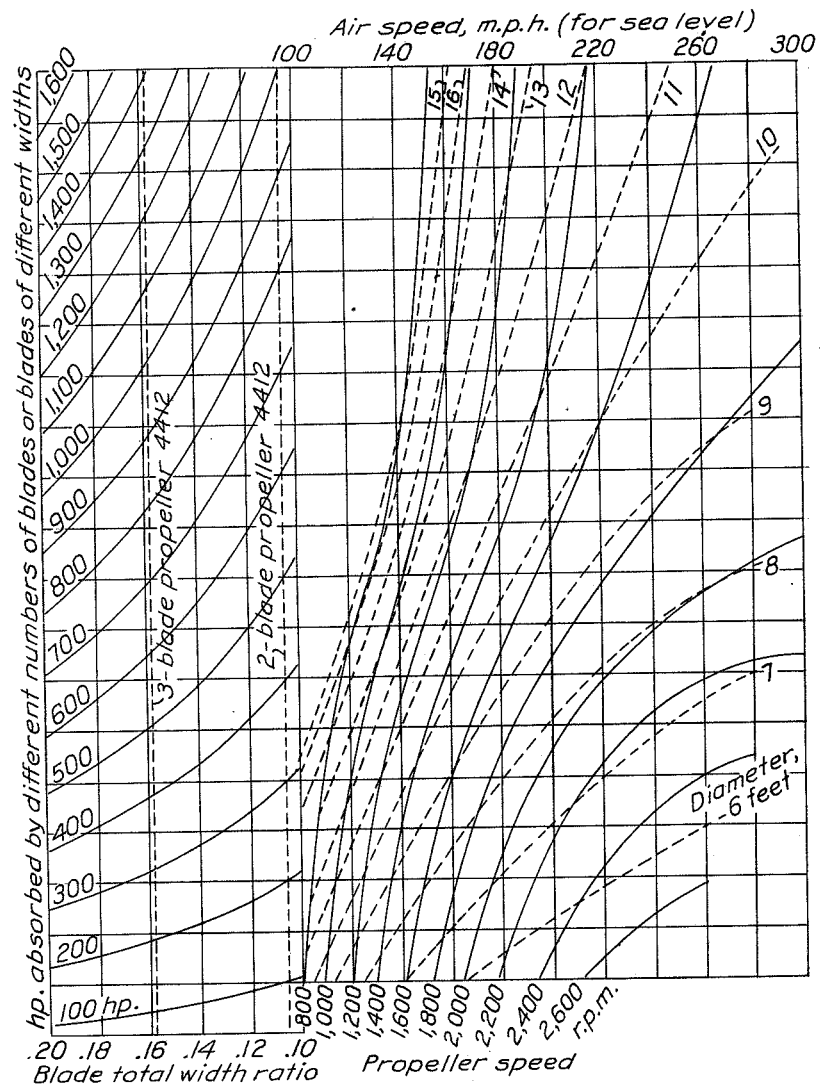 Air speed, m.p.h. (for sea level)
100 140 180 220 260 300
hp. absorbed by different numbers of blades or blades of different widths
1,600
1,500
1,400
1,300
1,200
1,100
1,000
900
800
700
600
500
400
300
200
100 hp.
3-blade propeller 4412
2-blade propeller 4412
15 16 14 13 12 11
10
9
8
7
Diameter,
6 feet
800 1,000 1,200 1,400 1,600 1,800 2,000 2,200 2,400 2,600 r.p.m.
.20 .18 .16 .14 .12 .10
Blade total width ratio
Propeller speed